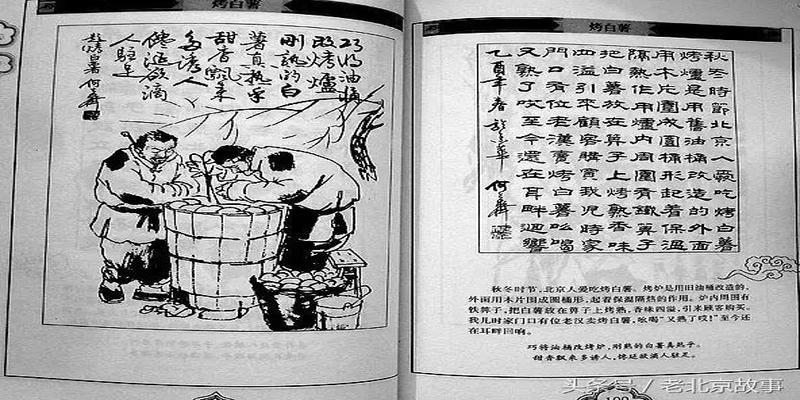 烤白薯
巧將油桶
改烤爐
剛熟的白
薯真熱乎
甜香飄來
多誘人
饞涎欲滴
人駐足
烤白薯
秋冬時節北京人愛吃烤白薯
烤爐是用舊油桶改造的外面
用木片圍成圓桶形起着保溫
隔熱作用爐內周圍有鐵箅子
把白薯放在箅子上烤熟香味
四溢引來顧客購買我兒時家
門口有位老漢賣烤白薯吆喝
又熟了哎至今還在耳畔迴響
乙酉年春
秋冬时节，北京人爱吃烤白薯。烤炉是用旧油桶改造的，
外面用木片围成圆桶形，起着保温隔热的作用。炉内周围有
铁箅子，把白薯放在箅子上烤熟，香味四溢，引来顾客购买。
我儿时家门口有位老汉卖烤白薯，吆喝“又熟了哎！”至今还
在耳畔回响。
巧将油桶改烤炉，刚熟的白薯真热乎。
甜香飘来多诱人，馋涎欲滴人驻足。
头条号 / 老北京故事